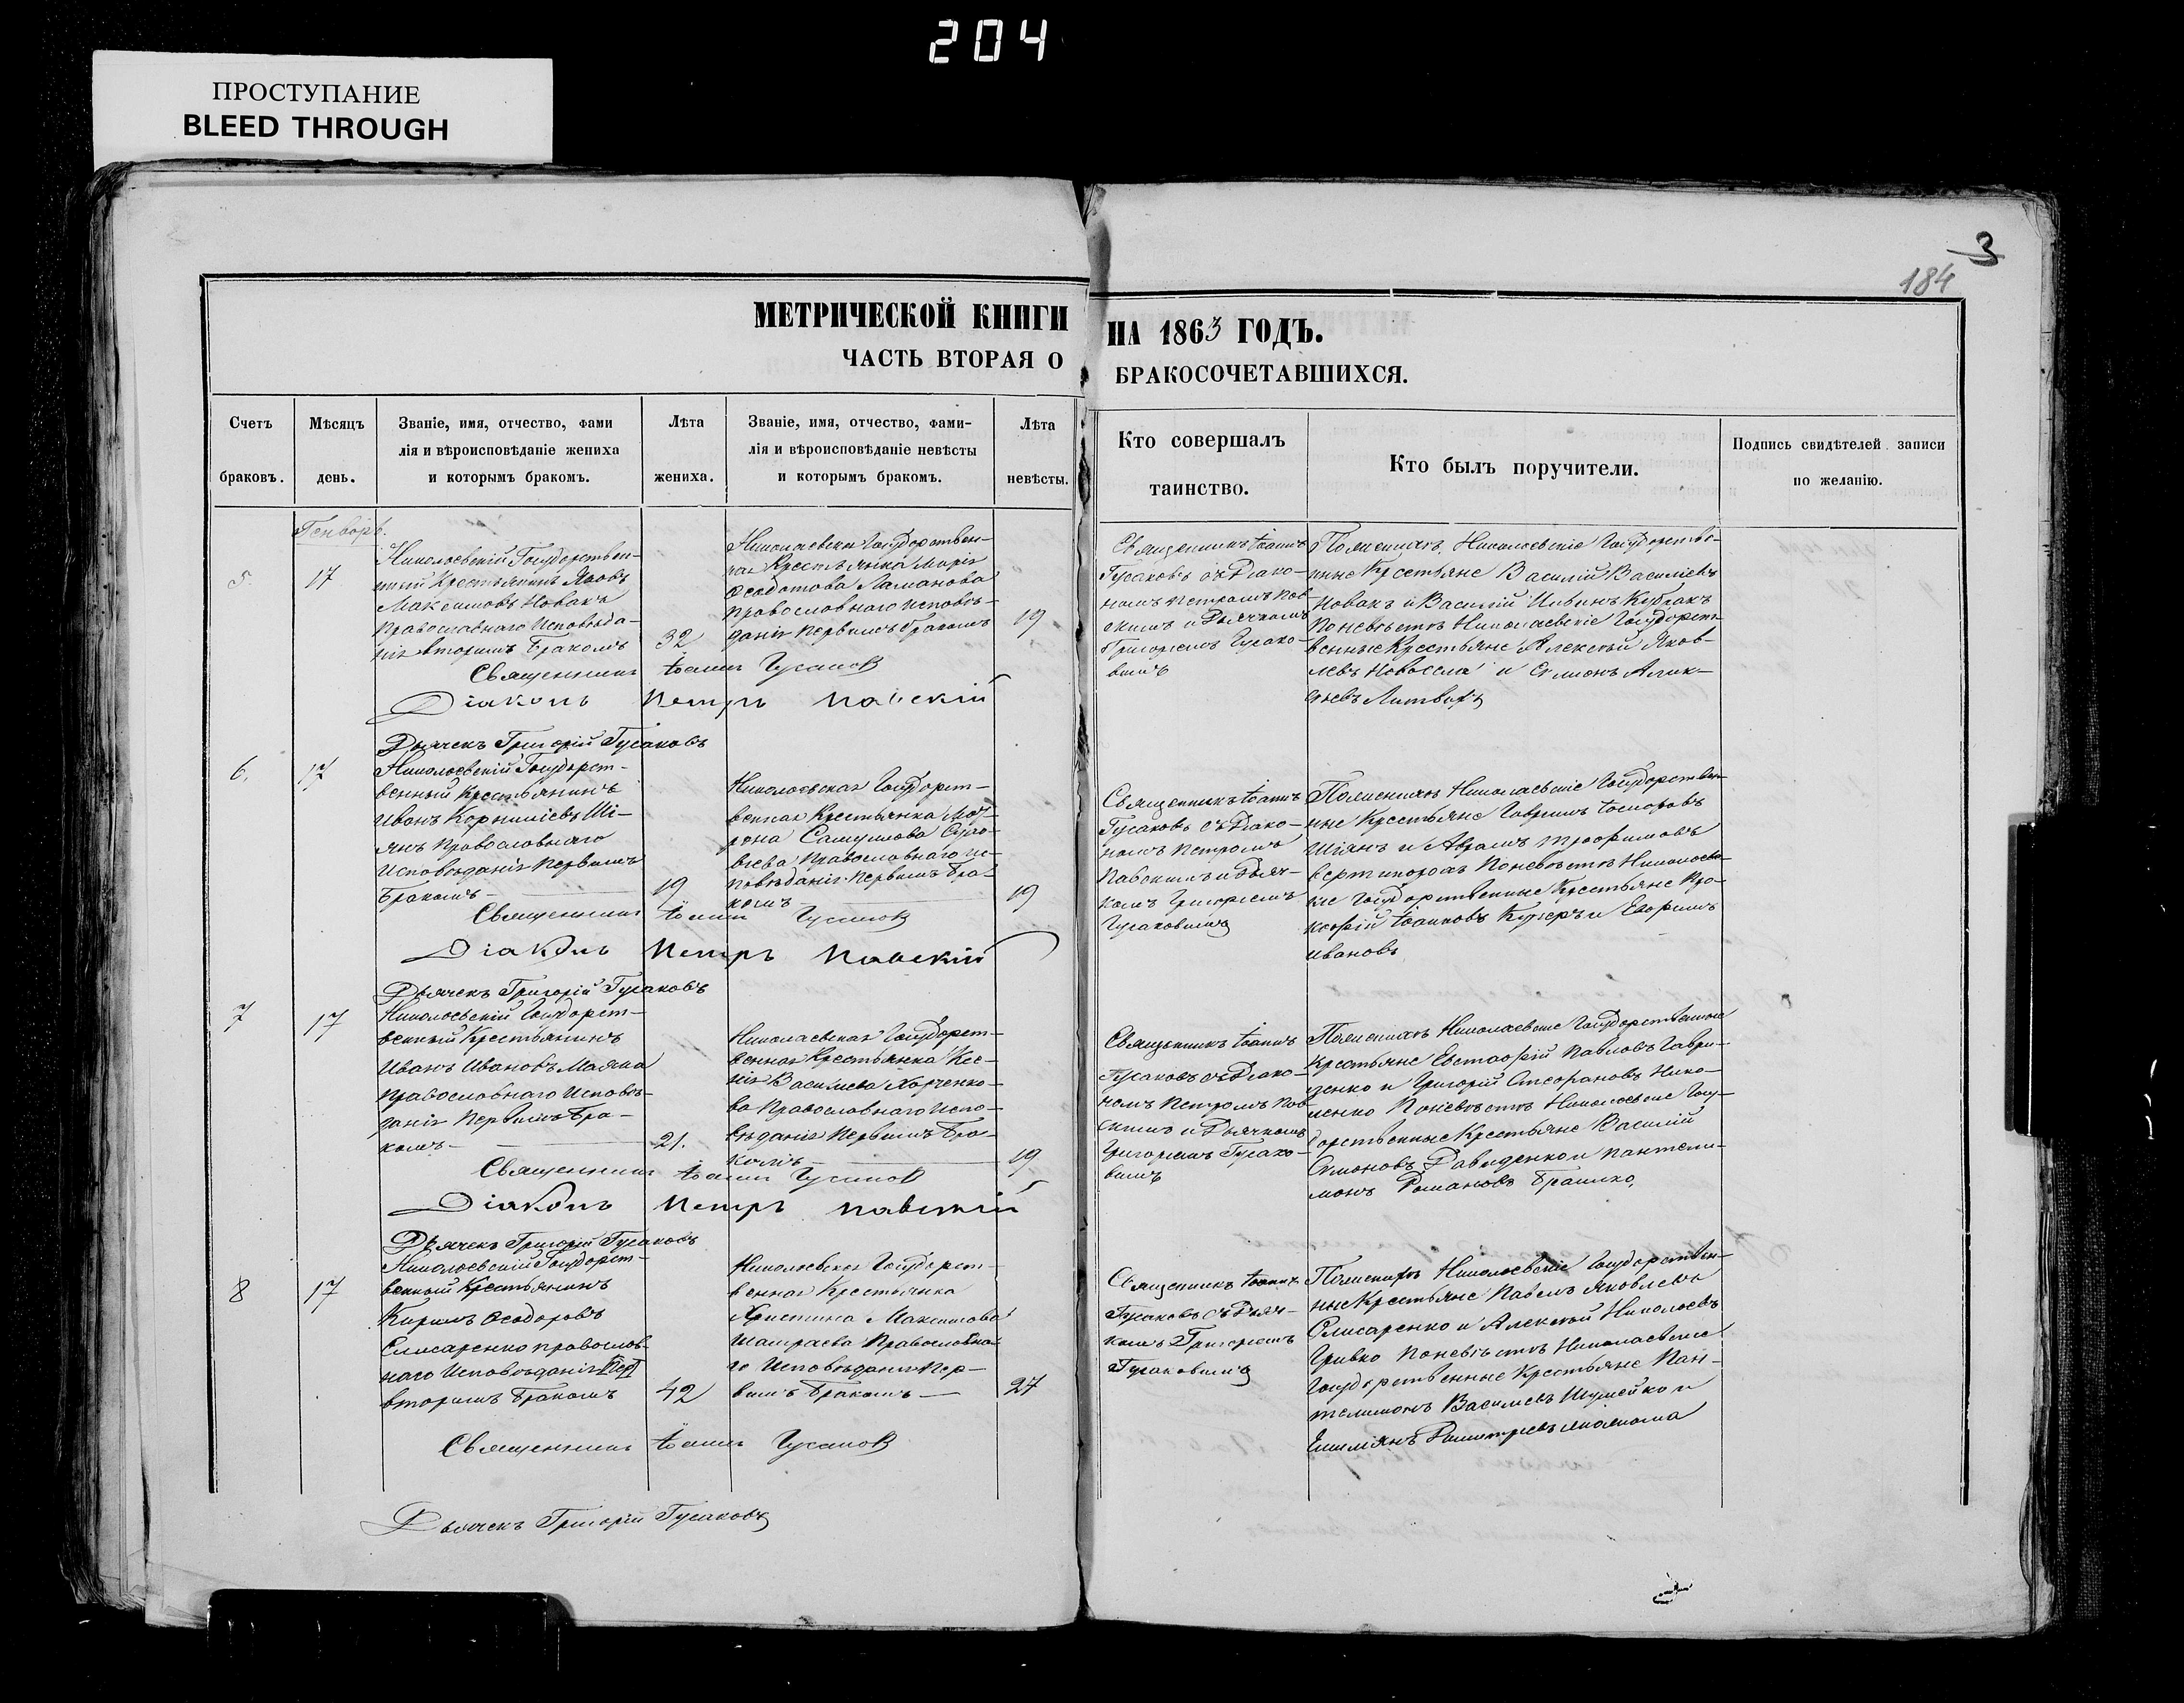 204
ПРОСТУПАНИЕ
BLEED THROUGH
3
184
МЕТРИЧЕСКОЙ КНИГИ НА 1863 ГОДЪ.
ЧАСТЬ ВТОРАЯ О БРАКОСОЧЕТАВШИХСЯ.
Счетъ
браковъ.
Мѣсяцъ
день.
Званіе, имя, отчество, фами
лія и вѣроисповѣданіе жениха
и которымъ бракомъ.
Лѣта
жениха.
Званіе, имя, отчество, фами-
лія и вѣроисповѣданіе невѣсты
и которымъ бракомъ.
Лѣта
невѣсты.
Кто совершалъ
таинство.
Кто былъ поручители.
Подпись свидѣтелей записи
по желанію.
Генварь.
5.
17
Николаевскій Государствен-
ный Крестьянинъ Яковъ
Максимовъ Новакъ
Православнаго Исповѣда-
нія вторымъ Бракомъ
32
Николаевская Государствен-
ная Крестьянка Марія
Ѳеодотова
Православнаго исповѣ-
данія Первымъ бракомъ
19
Священникъ Іоаннъ
Гусаковъ съ Діако-
номъ Петромъ Пав-
скимъ и Дьячкомъ
Григоріемъ Гусако-
вымъ
Николаевскіе Государстве-
нные Крестьяне Василій Василіевъ
Новакъ и Василій
Николаевскіе Государст-
венные Крестьяне Алексѣй Яков-
левъ и Симонъ
Священникъ Іоаннъ Гусаковъ
Діаконъ Петръ Павскій
Дьячекъ Григорій Гусаковъ
6.
17
Николаевскій Государст-
венный Крестьянинъ
Иванъ Корниліевъ Ші-
янъ Православнаго
Исповѣданія Первымъ
Бракомъ
19
Николаевская Государст-
венная Крестьянка Мат-
рона Самуилова
Православнаго ис-
повѣданія Первымъ Бра-
комъ
19
Священникъ Іоаннъ
Гусаковъ съ Діако-
номъ Петромъ
Павскимъ и Дьяч-
комъ Григоріемъ
Гусаковымъ
Николаевскіе Государствен-
ные Крестьяне Гавріилъ
Шіянъ и Аврамъ Трофимовъ
Государственные Крестьяне Про-
кофій
Ивановъ
Священникъ Іоаннъ Гусаковъ
Діаконъ Петръ Павскій
Дьячекъ Григорій Гусаковъ
7
17
Николаевскій Государст-
венный Крестьянинъ
Иванъ Ивановъ
Православнаго Исповѣ-
данія Первымъ Бра-
комъ
21.
Николаевская Государст-
венная Крестьянка Ксе-
нія Василіева Харченко-
ва Православнаго Испо-
вѣданія Первымъ Бра-
комъ
19
Священникъ Іоаннъ
Гусаковъ съ Діако-
номъ Петромъ Пав-
скимъ и Дьячкомъ
Григоріемъ Гусако-
вымъ
Николаевскіе Государственные
Крестьяне Евстафій Павловъ Гаври-
ленко и Григорій Стефановъ Нико-
ленко Николаевскіе Госу-
дарственные Крестьяне Василій
Симоновъ Давиденко и Пантели-
монъ Романовъ
Священникъ Іоаннъ Гусаковъ
Діаконъ Петръ Павскій
Дьячекъ Григорій Гусаковъ
8
17
Николаевскій Государст-
венный Крестьянинъ
Кирилъ Ѳеодоровъ
Елисаренко православ-
наго Исповѣданія
вторымъ Бракомъ
42
Николаевская Государст-
венная Крестьянка
Христина Максимова
Православна-
го Исповѣданія Пер-
вымъ Бракомъ
27
Священникъ Іоаннъ
Гусаковъ съ Дьяч-
комъ Григоріемъ
Гусаковымъ
Николаевскіе Государствен-
ные Крестьяне Павелъ Яковлевъ
Елисаренко и Алексѣй Николаевъ
Гривко Николаевскіе
Государственные Крестьяне Пан-
телимонъ Василіевъ Шумейко и
Емиліянъ Димитріевъ
Священникъ Іоаннъ Гусаковъ
Дьячекъ Григорій Гусаковъ